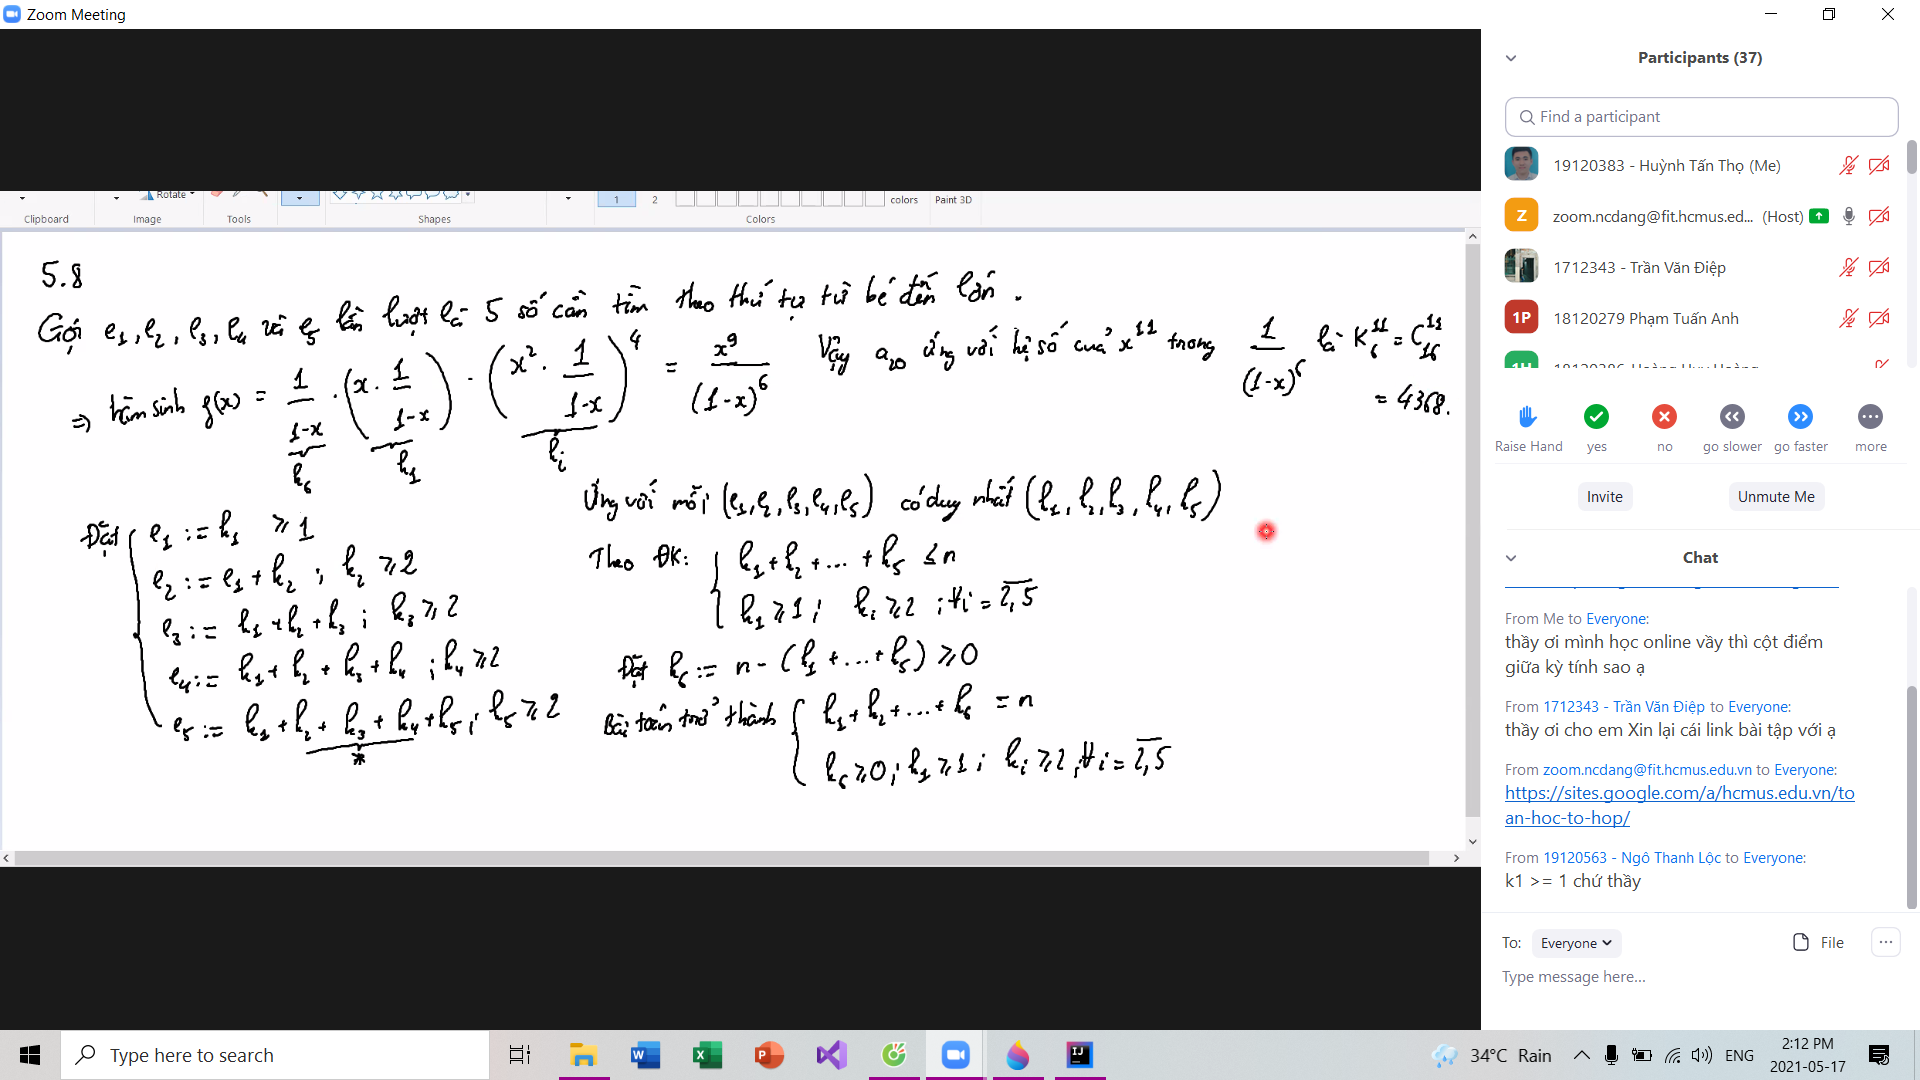 Zoom Meeting
Rotate
1
2
colors
Paint 3D
Clipboard
Image
Tools
Shapes
Colors
5.8
Gọi e1, e2, e3, e4 và e5 lần lượt là 5 số cần tìm theo thứ tự từ bé đến lớn.
⇒ hàm sinh g(x) = 1/(1-x) · (x · 1/(1-x)) · (x² · 1/(1-x))⁴ = x⁹/(1-x)⁶ Vậy a20 ứng với hệ số của x¹¹ trong 1/(1-x)⁶ là K₆¹¹ = C₁₆¹¹
= 4368.
k6
k1
ki
Ứng với mỗi (e1, e2, e3, e4, e5) có duy nhất (k1, k2, k3, k4, k5)
Đặt { e1 := k1 ⩾ 1
e2 := e1 + k2 ; k2 ⩾ 2
e3 := k1 + k2 + k3 ; k3 ⩾ 2
e4 := k1 + k2 + k3 + k4 ; k4 ⩾ 2
e5 := k1 + k2 + k3 + k4 + k5 ; k5 ⩾ 2
*
Theo ĐK: { k1 + k2 + ... + k5 ≤ n
k1 ⩾ 1 ; ki ⩾ 2 ; ∀i = 2,5
Đặt k6 := n - (k1 + ... + k5) ⩾ 0
Bài toán trở thành { k1 + k2 + ... + k6 = n
k6 ⩾ 0 ; k1 ⩾ 1 ; ki ⩾ 2 , ∀i = 2,5
Participants (37)
Find a participant
19120383 - Huỳnh Tấn Thọ (Me)
Z
zoom.ncdang@fit.hcmus.ed... (Host)
1712343 - Trần Văn Điệp
1P
18120279 Phạm Tuấn Anh
1H
18120386 Hoàng Huy Hoàng
Raise Hand
yes
no
go slower
go faster
more
Invite
Unmute Me
Chat
From Me to Everyone:
thầy ơi mình học online vầy thì cột điểm
giữa kỳ tính sao ạ
From 1712343 - Trần Văn Điệp to Everyone:
thầy ơi cho em Xin lại cái link bài tập với ạ
From zoom.ncdang@fit.hcmus.edu.vn to Everyone:
https://sites.google.com/a/hcmus.edu.vn/to
an-hoc-to-hop/
From 19120563 - Ngô Thanh Lộc to Everyone:
k1 >= 1 chứ thầy
To:
Everyone
File
Type message here...
Type here to search
34°C Rain
ENG
2:12 PM
2021-05-17